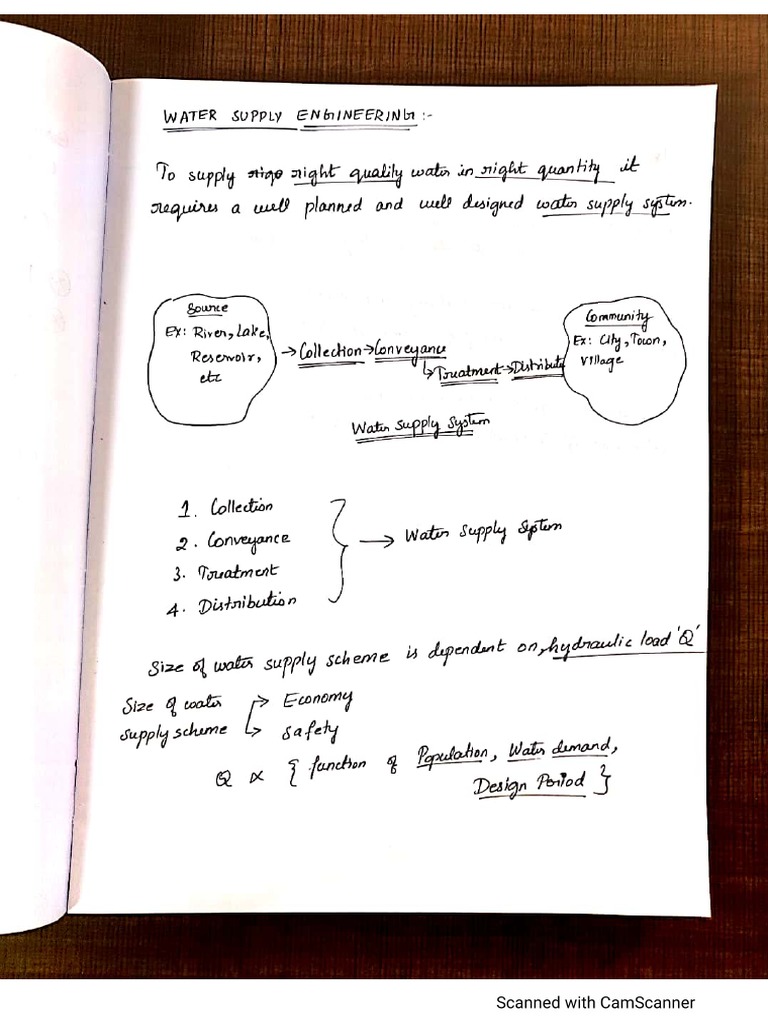 WATER SUPPLY ENGINEERING :-
To supply right quality water in right quantity it
requires a well planned and well designed water supply system.
Source
Ex: River, Lake,
Reservoir,
etc
→ Collection → Conveyance
↳ Treatment → Distribute
Community
Ex: City, Town,
Village
Water Supply System
1. Collection
2. Conveyance
3. Treatment
4. Distribution
→ Water Supply System
Size of water supply scheme is dependent on, hydraulic load 'Q'
Size of water
supply scheme
→ Economy
↳ Safety
Q ∝ { function of Population, Water demand,
Design Period }
Scanned with CamScanner